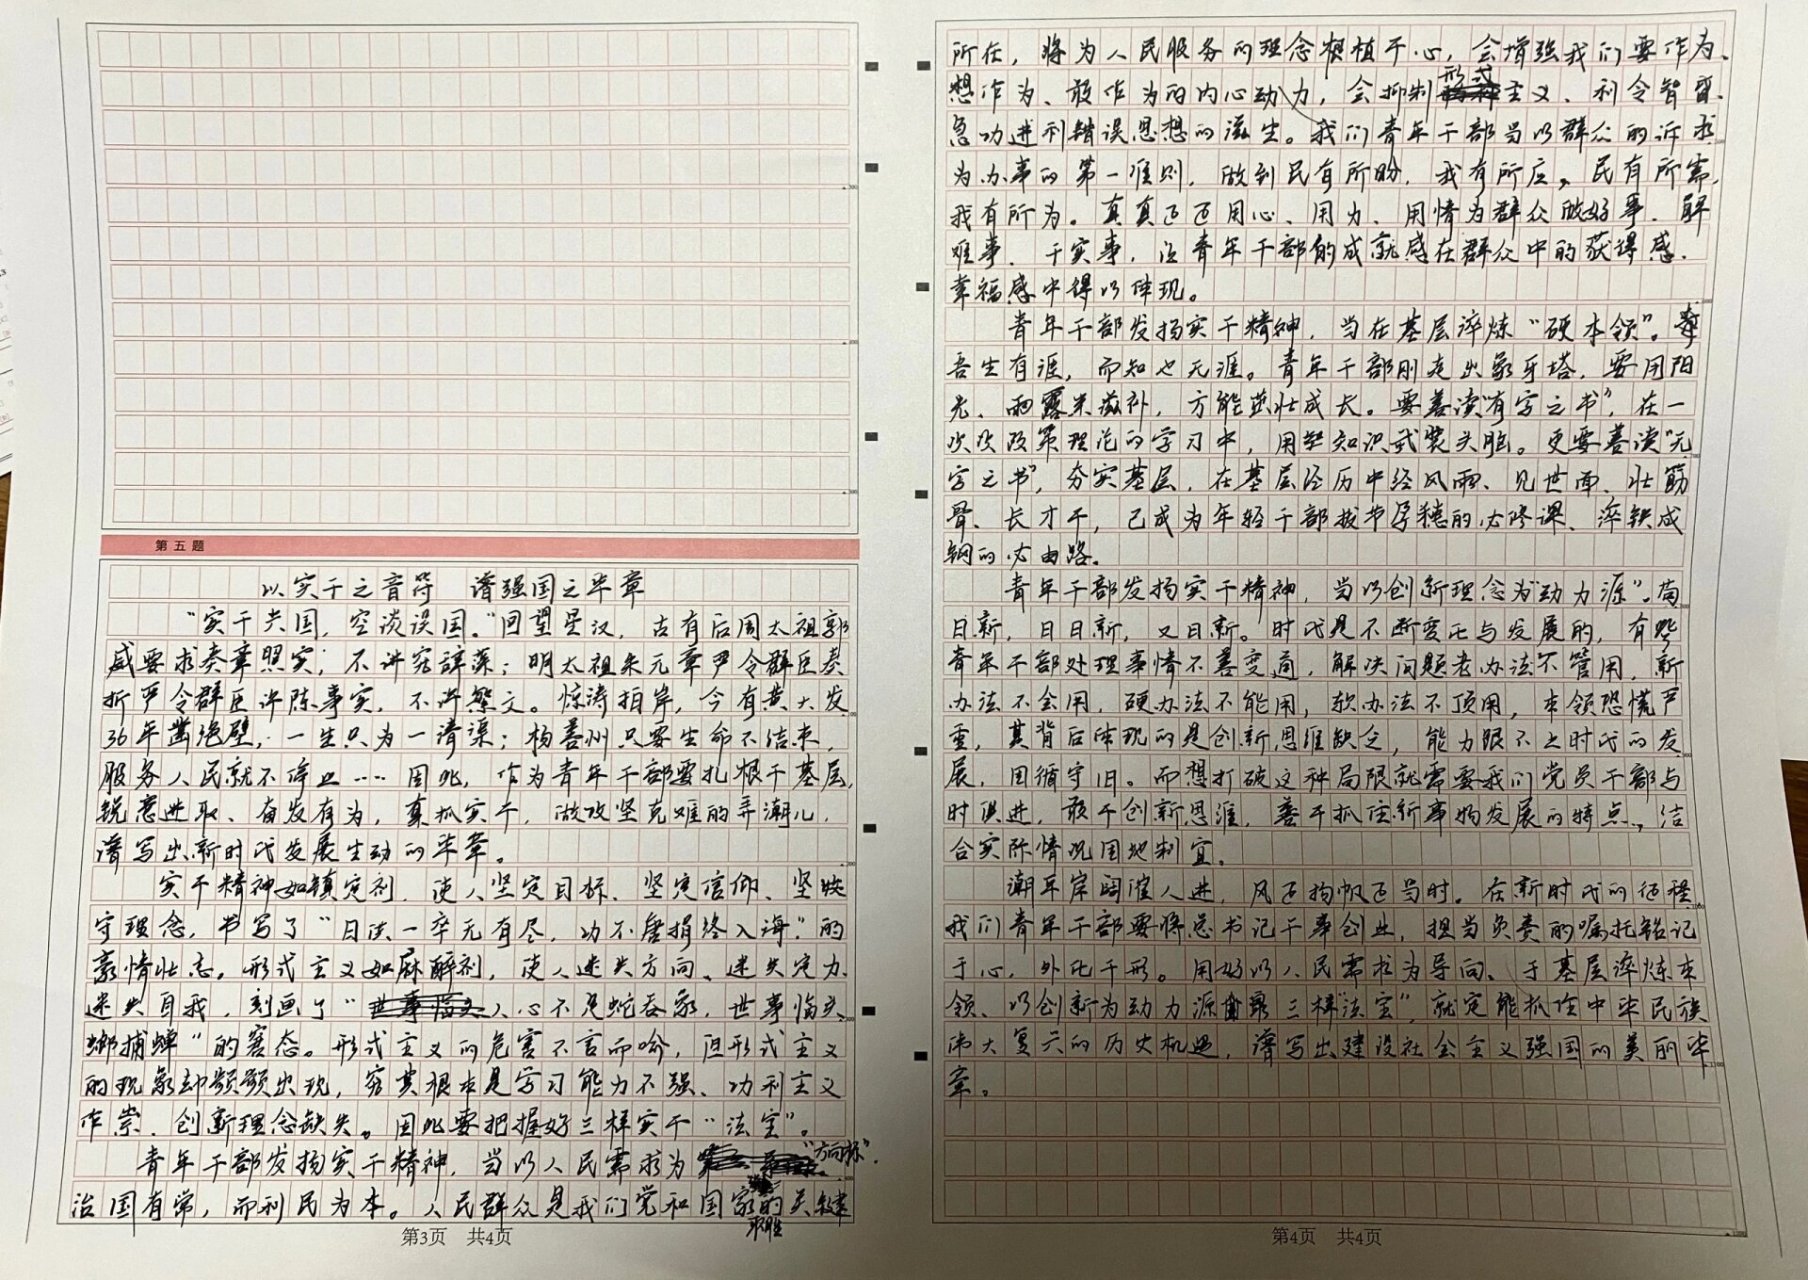 第五题
以实干之音符 谱强国之华章
“实干兴国，空谈误国。”回望星汉，古有后周太祖郭
威要求奏章照实，不讲究辞藻；明太祖朱元章严令群臣奏
折严令群臣详陈事实，不讲繁文。惊涛拍岸，今有黄大发
36年凿绝壁，一生只为一清渠；杨善州只要生命不结束，
服务人民就不停止……因此，作为青年干部要扎根干基层，
锐意进取、奋发有为，真抓实干，做攻坚克难的弄潮儿，
谱写出新时代发展生动的华章。
实干精神如镇定剂，使人坚定目标、坚定信仰、坚
守理念，书写了“日读一卒无有尽，功不唐捐终入海”的
豪情壮志。形式主义如麻醉剂，使人迷失方向、迷失定力、
迷失自我，刻画了“人心不足蛇吞象，世事临头
螂捕蝉”的窘态。形式主义的危害不言而喻，但形式主义
的现象却频频出现，究其根本是学习能力不强、功利主义
作祟、创新理念缺失。因此要把握好三样实干“法宝”。
青年干部发扬实干精神，当以人民需求为“方向标”。
治国有常，而利民为本。人民群众是我们党和国家取胜的关键
第3页 共4页
所在，将为人民服务的理念根植于心，会增强我们要作为、
想作为、敢作为的内心动力，会抑制形式主义、利令智昏、
急功进利错误思想的滋生。我们青年干部当以群众的诉求
为办事的第一准则，做到民有所盼，我有所应，民有所需，
我有所为。真真正正用心、用力、用情为群众做好事、解
难事、干实事，让青年干部的成就感在群众中的获得感、
幸福感中得以体现。
青年干部发扬实干精神，当在基层淬炼“硬本领”。
吾生有涯，而知也无涯。青年干部刚走出象牙塔，要用阳
光、雨露来滋补，方能茁壮成长。要善读“有字之书”，在一
次次政策理论的学习中，用知识武装头脑。更要善读“无
字之书”，夯实基层，在基层经历中经风雨、见世面、壮筋
骨、长才干，已成为年轻干部拔节孕穗的必修课、淬铁成
钢的必由路。
青年干部发扬实干精神，当以创新理念为“动力源”。苟
日新，日日新，又日新。时代是不断变化与发展的，有些
青年干部处理事情不善变通，解决问题老办法不管用，新
办法不会用，硬办法不能用，软办法不顶用，本领恐慌严
重，其背后体现的是创新思维缺乏，能力跟不上时代的发
展，因循守旧。而想打破这种局限就需要我们党员干部与
时俱进，敢于创新思维，善于抓住新事物发展的特点，结
合实际情况因地制宜。
潮平岸阔催人进，风正扬帆正当时。在新时代的征程
我们青年干部要将总书记干事创业，担当负责的嘱托铭记
于心，外化于形。用好以人民需求为导向、于基层淬炼本
领、以创新为动力源三样“法宝”，就定能抓住中华民族
伟大复兴的历史机遇，谱写出建设社会主义强国的美丽华
章。
第4页 共4页